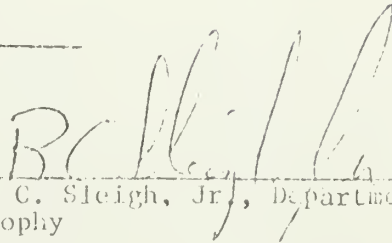 C. Sleigh, Jr., Departme
ophy